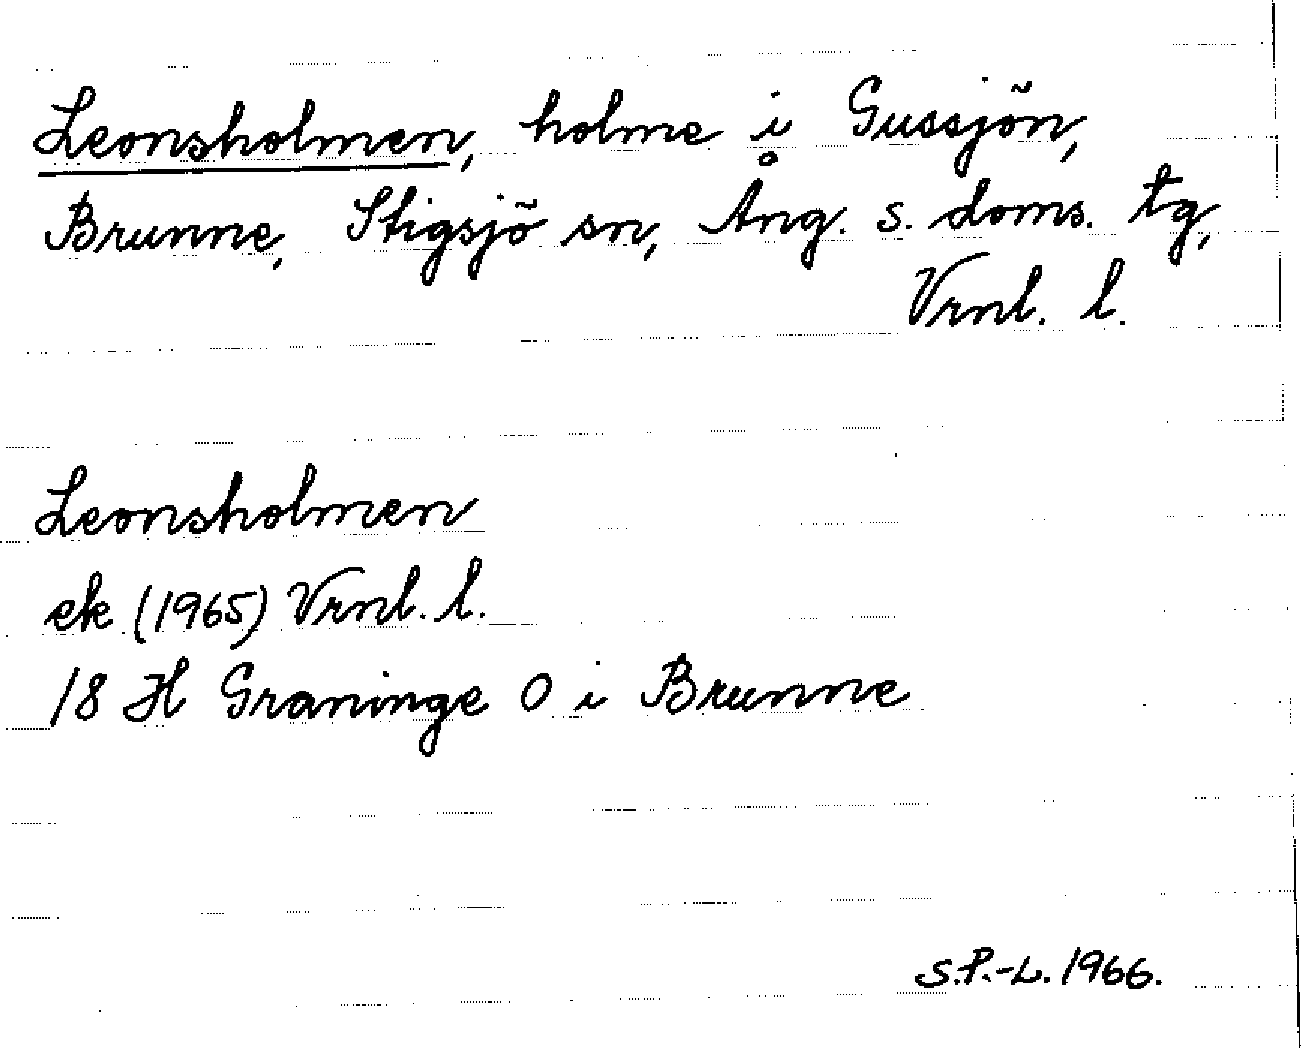 Leonsholmen, holme i Gussjön,
Brunne, Stigsjö sn, Ång. s. doms. tg,
Vrnl. l.
Leonsholmen
ek (1965) Vrnl. l.
18 H Graninge O i Brunne
S.P.-L. 1966.